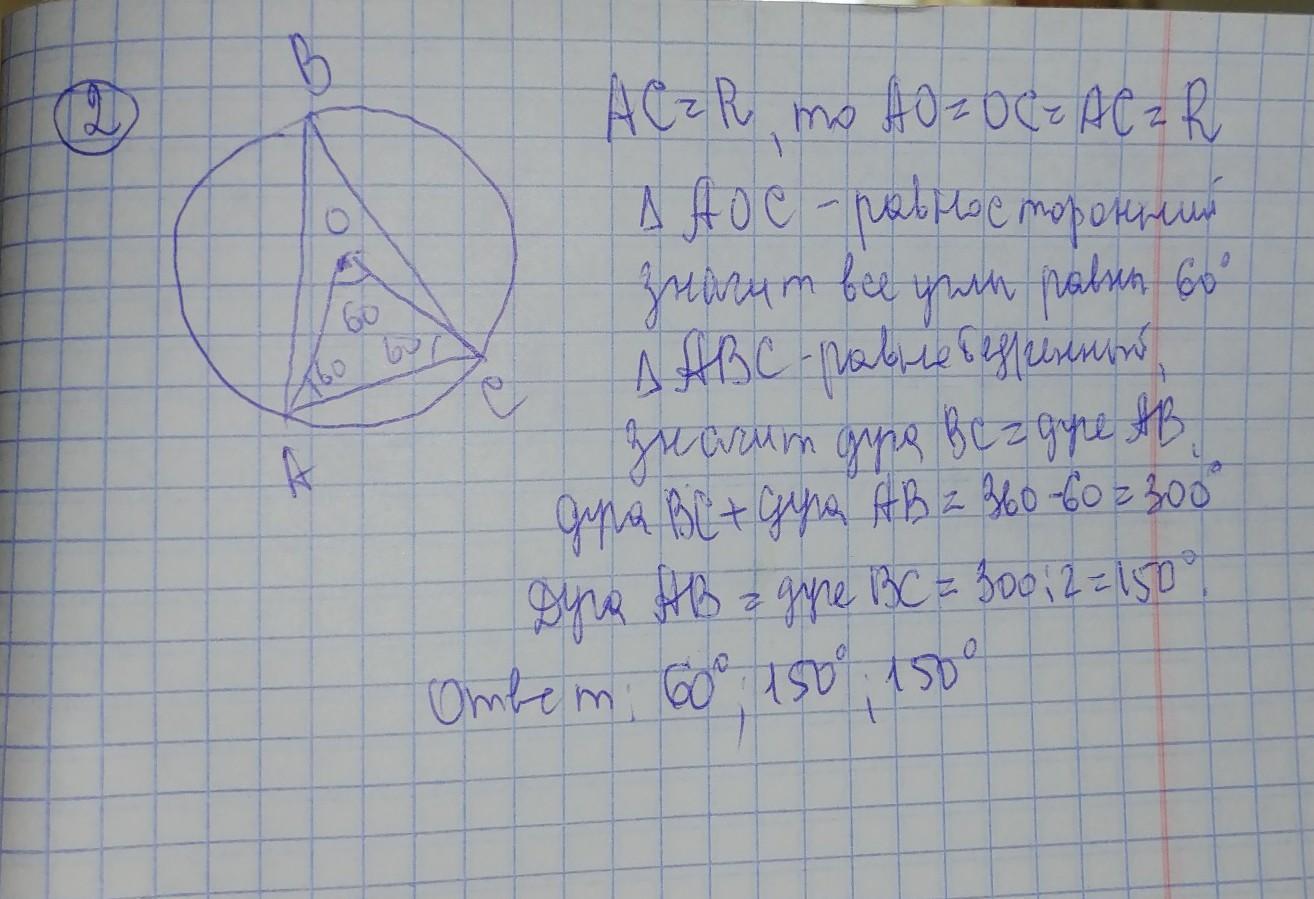 2
B
AC = R, то AO = OC = AC = R
O
Δ AOC - равносторонний
значит все углы равны 60°
60
60
60
Δ ABC - равнобедренный,
C
значит дуга BC = дуге AB.
A
дуга BC + дуга AB = 360 - 60 = 300°
Дуга AB = дуге BC = 300 : 2 = 150°.
Ответ: 60°; 150°; 150°